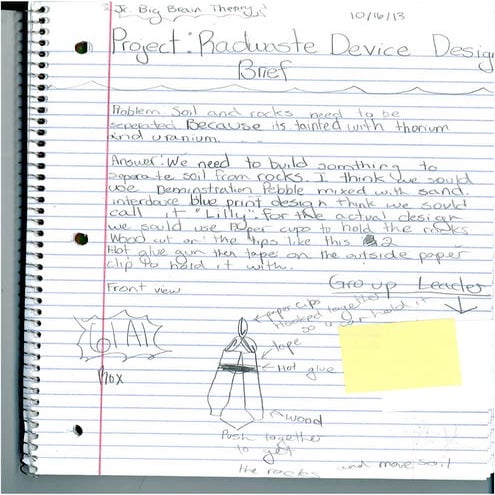 Jr. Big Brain Theory
10/16/13
Project: Radwaste Device Design
Brief
Problem: Soil and rocks need to be
seperated Because its tainted with thorium
and uranium.
Answer: We need to build somthing to
separate soil from rocks. I think we sould
use Deminstration Pebble mixed with sand.
interdaxe blue print design think we sould
call it "Lilly". for the actual design
we sould use paper cups to hold the rocks
Wood cut on the tips like this 2
Hot glue gun then tape on the outside paper
clip to hold it with.
Group Leader
Front view
paper clips
Hooked together
so u can hold it
tape
Hot glue
wood
Push together
to get
the rocks and move soil